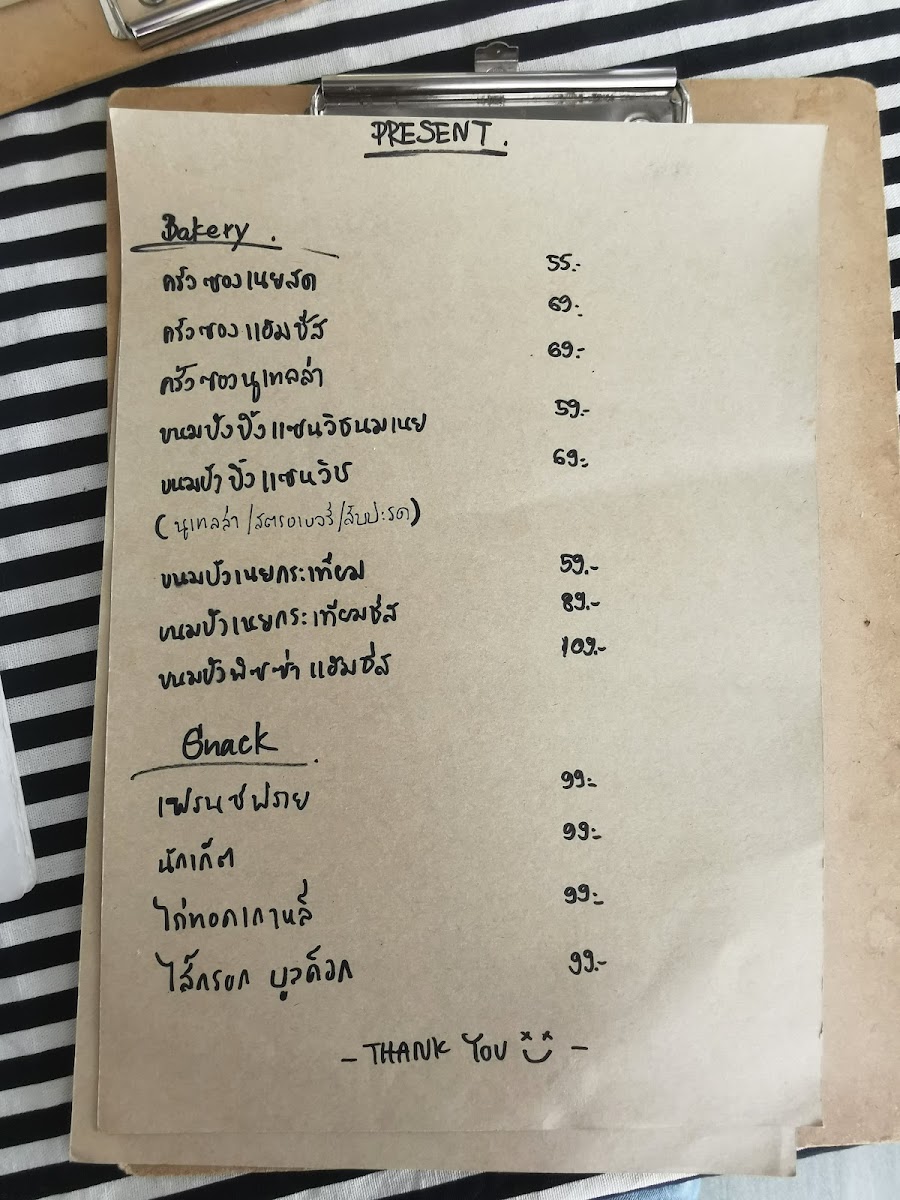 PRESENT.
Bakery.
ครัวซองเนยสด 55.-
ครัวซองแฮมชีส 69.-
ครัวซองนูเทลล่า 69.-
ขนมปังปิ้งแซนวิชนมเนย 59.-
ขนมปังปิ้งแซนวิช 69.-
(นูเทลล่า/สตรอเบอรี่/สับปะรด)
ขนมปังเนยกระเทียม 59.-
ขนมปังเนยกระเทียมชีส 89.-
ขนมปังพิซซ่าแฮมชีส 109.-
Snack.
เฟรนช์ฟราย 99.-
นักเก็ต 99.-
ไก่ทอดเกาหลี 99.-
ไส้กรอก บูลด็อก 99.-
- THANK YOU -